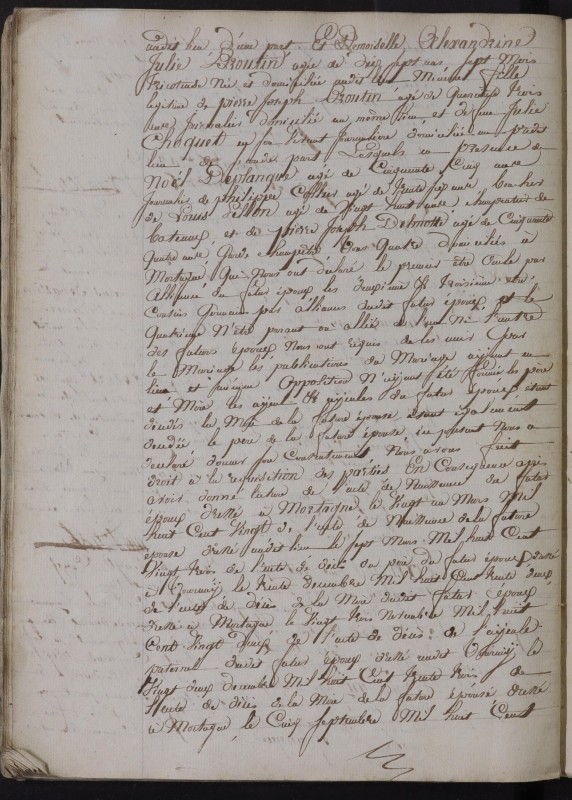 audit lieu d'une part. Et Demoiselle Alexandrine
Julie Broutin agée de dix sept ans, sept Mois
Née et domiciliée audit lieu Mineure fille
legitime de pierre Joseph Broutin agé de quarante trois
ans, Journalier domicilié au même lieu, et de feue Julie
Choquet en son vivant Journalière domiciliée au
lieu de seconde part. Lesquels en presence de
Noël Deplanque agé de Cinquante Cinq ans
Journalier de philippe agé de trente ans
de Louis agé de Vingt huit ans charpentier de
bateaux, et de pierre Joseph Delmotte agé de Cinquante
quatre ans, Garde champêtre tous quatre domiciliés à
Mortagne, que Nous ont declaré le premier être Oncle par
Alliance du futur époux les deuxième & troisième être
Cousins Germains par alliance dudit futur époux, et le
quatrième N'être parent ou allié de l'un ni l'autre
des futurs époux Nous ont requis de les unir par
le Mariage les publications du Mariage ayant eu
lieu et aucune Opposition N'ayant été formée les père
et Mère les ayeul & ayeules du futur époux étant
decedés la Mère de la future épouse étant également
decedée le père de la future épouse ici présent Nous a
declaré donner son Consentement. Nous avons fait
droit à la requisition des parties En Consequence après
avoir donné lecture de l'acte de Naissance du futur
époux dressé à Mortagne le Vingt un Mars Mil
huit Cent Vingt de l'acte de Naissance de la future
épouse dressé audit lieu le Sept Mars Mil huit Cent
Vingt trois de l'acte de décès du père du futur époux dressé
à le trente decembre Mil huit Cent trente deux
de l'acte de décès de la Mère dudit futur époux
dressé à Mortagne le Vingt trois Novembre Mil huit
Cent Vingt de l'acte de décès de l'ayeule
paternel dudit futur époux dressé audit le
Vingt deux decembre Mil huit Cent trente trois de
l'acte de décès de la Mère de la future épouse dressé
à Mortagne, le Cinq Septembre Mil huit Cent